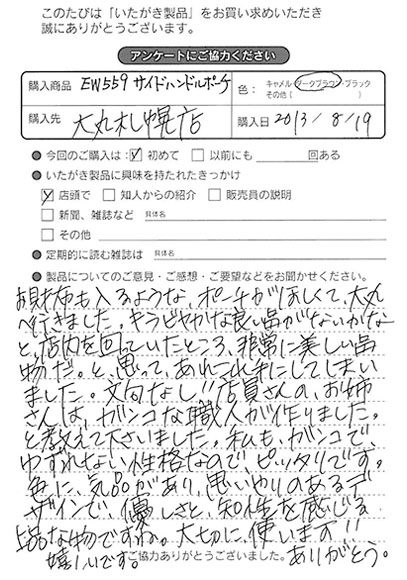 このたびは「いたがき製品」をお買い求めいただき
誠にありがとうございます。
アンケートにご協力ください
購入商品 EW559 サイドハンドルポーチ 色： キャメル・ダークブラウン・ブラック
その他（
購入先 大丸札幌店 購入日 2013/8/19
● 今回のご購入は： ☑ 初めて □ 以前にも 回ある
● いたがき製品に興味を持たれたきっかけ
☑ 店頭で □ 知人からの紹介 □ 販売員の説明
□ 新聞、雑誌など 具体名
□ その他
● 定期的に読む雑誌は 具体名
● 製品についてのご意見・ご感想・ご要望などをお聞かせください。
お財布も入るような、ポーチがほしくて、大丸
へ行きました。キラビヤかな良い品がないかな
と、店内を回っていたところ、非常に美しい品
物だ。と、思って、あれこれ手にしてしまい
ました。文句なし!! 店員さんの、お姉
さんは、ガンコな職人が作りました。
と教えて下さいました。私も、ガンコで、
ゆずれない性格なので、ピッタリです。
色に、気品があり、思いやりのあるデ
ザインで、優しさと、知性を感じる
上品な物ですね。大切に、使います!!
嬉しいです。 ありがとう。
ご協力ありがとうございました。